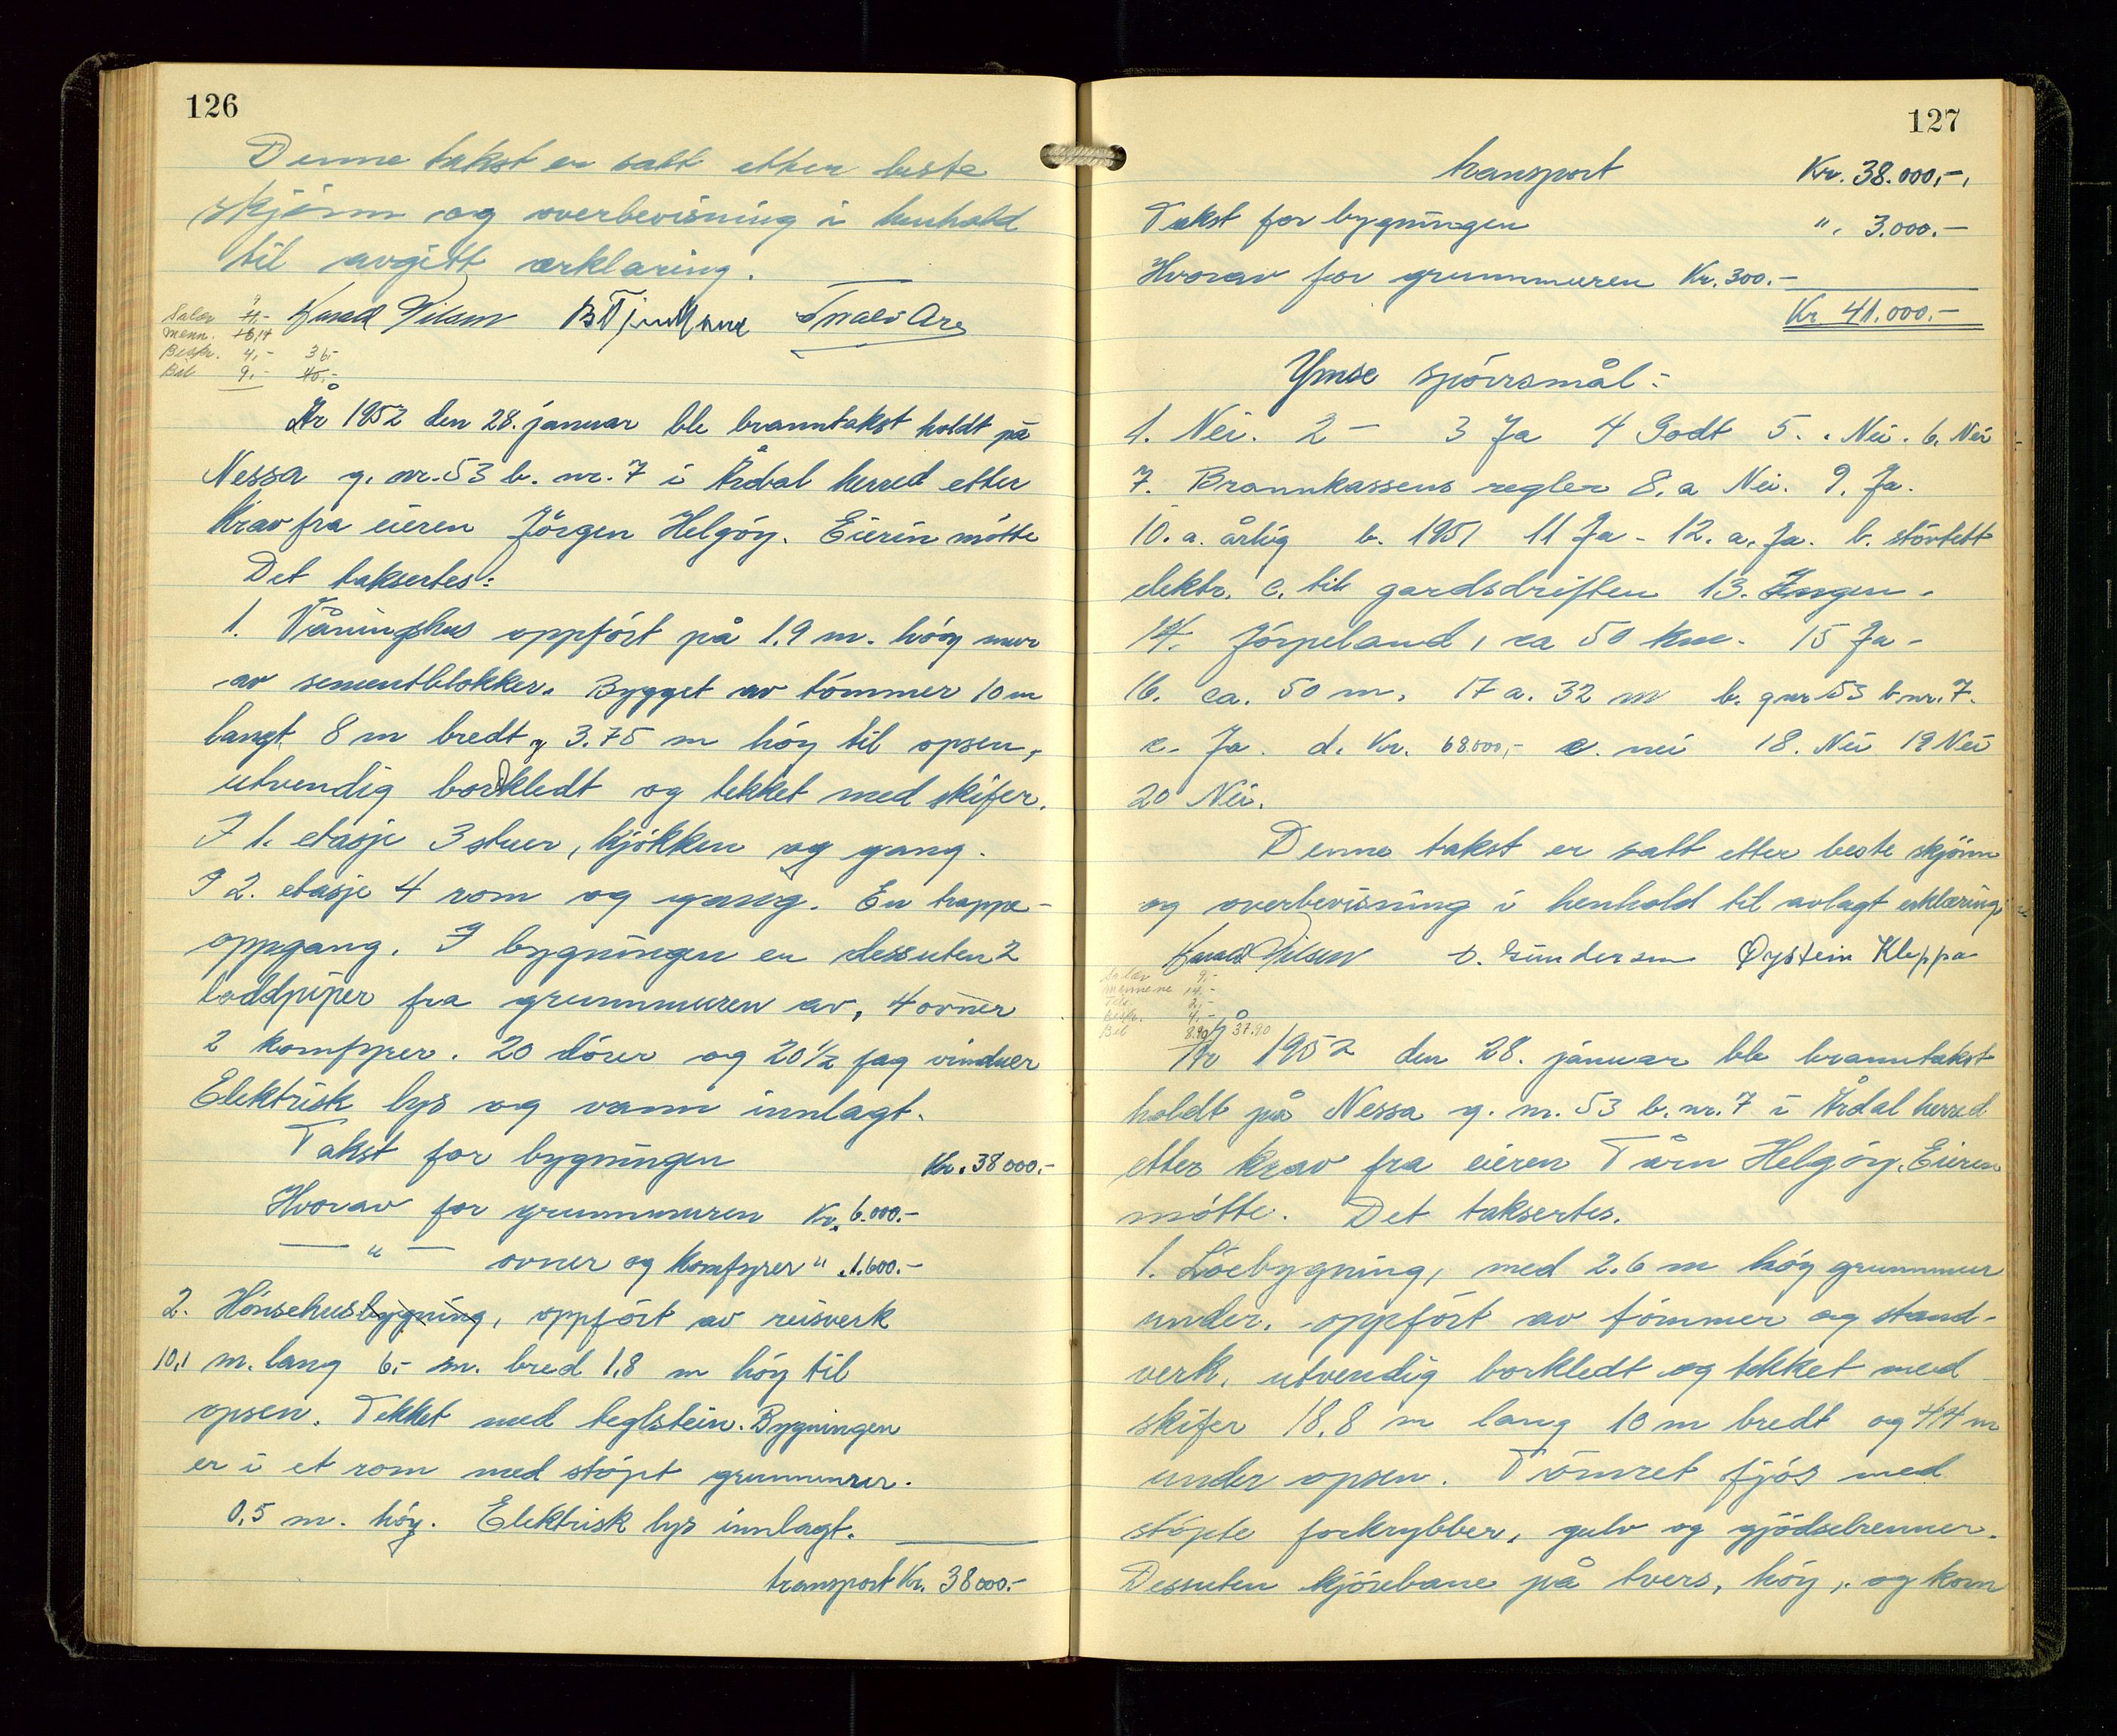 126
Denne takst er satt etter beste
skjönn og overbevisning i henhold
til avgitt erklæring.
Salær 9,-
menn. 14
Beskr. 4,- 36,-
Bil 9,- 40,-
År 1952 den 28. januar ble branntakst holdt på
Nessa g. nr. 53 b. nr. 7 i Årdal herred etter
krav fra eieren Jörgen Helgöy. Eieren mötte
Det taksertes:
1. Våningshus oppfört på 1.9 m. höy mur
av sementblokker. Bygget av tömmer 10 m
langt 8 m bredt og 3.75 m höy til opsen,
utvendig bordkledt og tekket med skifer.
I 1. etasje 3 stuer, kjökken og gang.
I 2. etasje 4 rom og gang. En trappe-
oppgang. I bygningen er dessuten 2
loddpiper fra grunnmuren av, 4 ovner
2 komfyrer. 20 dörer og 20½ fag vinduer
Elektrisk lys og vann innlagt.
Takst for bygningen Kr. 38000.-
Hvorav for grunnmuren Kr. 6.000.-
— " — ovner og komfyrer " 1.600.-
2. Hönsehusbygning, oppfört av reisverk
10,1 m. lang 6,- m. bred 1,8 m höy til
opsen. Tekket med teglstein. Bygningen
er i et rom med stöpt grunnmur.
0,5 m. höy. Elektrisk lys innlagt.
transport Kr. 38000.-
127
transport Kr. 38.000,-
Takst for bygningen " 3.000.-
Hvorav for grunnmuren Kr. 300.-
Kr 41.000.-
Ymse spörrsmål:
1. Nei. 2 - 3 Ja 4 Godt 5. Nei. 6. Nei
7. Brannkassens regler 8. a Nei. 9. Ja.
10. a. årlig b. 1951 11 Ja - 12. a. Ja. b. stövtett
elektr. c. til gardsdriften 13. Ingen.
14. Jörpeland, ca 50 km. 15 Ja -
16. ca. 50 m. 17 a. 32 m b. gnr 53 bnr. 7.
c. Ja. d. Kr. 68000,- e. nei 18. Nei 19 Nei
20 Nei.
Denne takst er satt etter beste skjönn
og overbevisning i henhold til avlagt erklæring.
Gundersen Øystein Kleppa
Salær 9,-
mennene 14,-
2,-
Beskr. 4,-
Bil 8.90 37.90
År 1952 den 28. januar ble branntakst
holdt på Nessa g. nr. 53 b. nr. 7 i Årdal herred
etter krav fra eieren Tårn Helgöy. Eieren
mötte. Det taksertes.
1. Löebygning, med 2.6 m höy grunnmur
under. oppfört av tömmer og stend-
verk, utvendig borkledt og tekket med
skifer 18,8 m lang 10 m bredt og 4,4 m
under opsen. Tömret fjös med
stöpte forkrybber, gulv og gjödselrenner.
Dessuten kjörebane på tvers, höy,- og korn